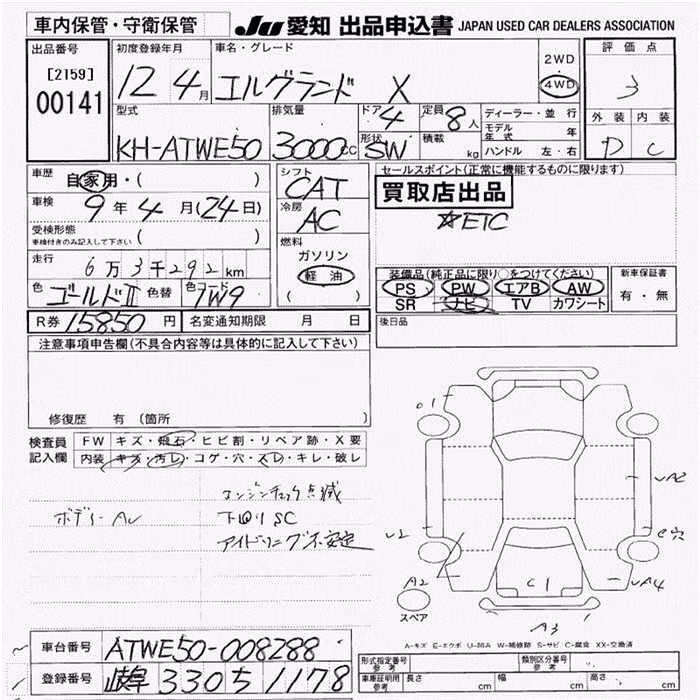 車内保管・守衛保管
JU 愛知 出品申込書 JAPAN USED CAR DEALERS ASSOCIATION
出品番号
[2159]
00141
初度登録年月
12 4月
車名・グレード
エルグランド X
2WD
4WD
評価点
3
外装 内装
D C
型式
KH-ATWE50
排気量
3000cc
ドア 4
形状 SW
定員 8人
積載 kg
ディーラー・並行
モデル年式 年
ハンドル 左・右
車歴
自家用・( )
車検
9年4月(24日)
受検形態
車検付きのみ記入して下さい ( )
走行
6万3千292km
色 ゴールドII 色替 色コード 1W9
シフト
CAT
冷房
AC
燃料
ガソリン
軽油
( )
セールスポイント(正常に機能するものに限ります)
買取店出品
☆ETC
装備品(純正品に限り○をつけてください)
PS PW エアB AW
SR ナビ TV カワシート
新車保証書
有・無
R券 15850円 名変通知期限 月 日
後日品
注意事項申告欄(不具合内容等は具体的に記入して下さい)
修復歴 有(箇所
検査員記入欄
FW キズ・飛石・ヒビ割・リペア跡・X要
内装 キズ・汚レ・コゲ・穴・スレ・キレ・破レ
エンジンチェック点滅
ボディーAU 下回りSC
アイドリング不安定
01
U2
A2
C1
A3
UA2
E穴
UA4
スペア
A-キズ E-エクボ U-凹み W-補修跡 S-サビ C-腐食 XX-交換済
車台番号 ATWE50-008288
登録番号 岐阜 330 ち 1178
形式指定番号 参考
類別区分番号 参考
車庫証明用 参考 長さ cm 幅 cm 高さ cm